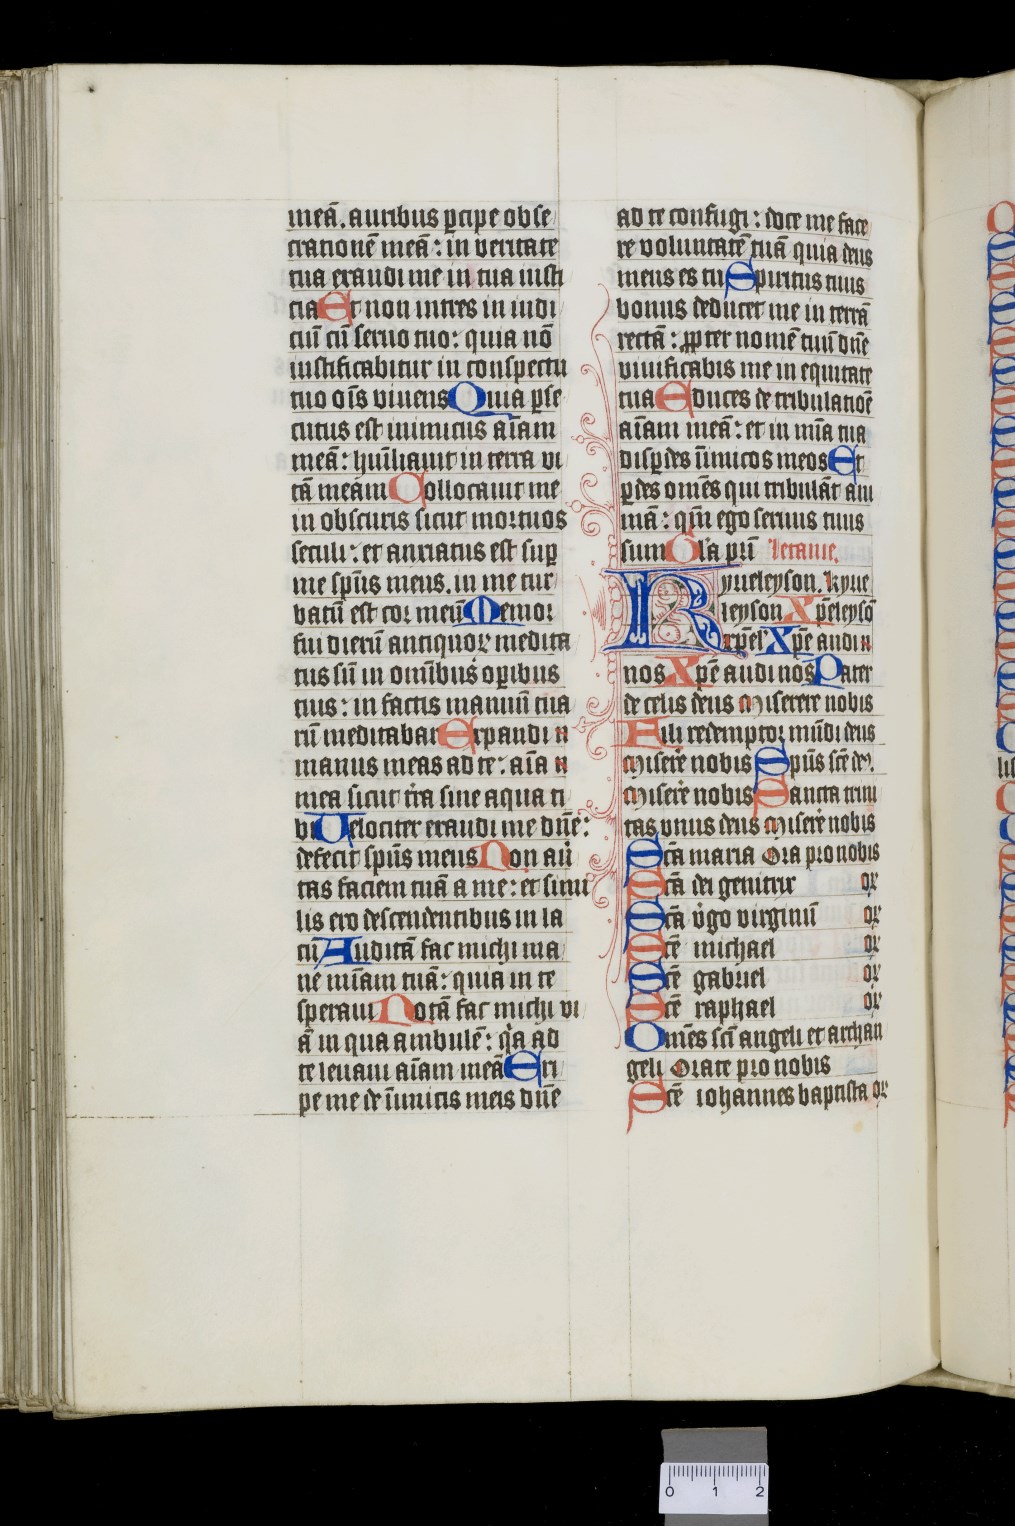 meā. auribus ꝑcipe obse
crationē meā: in veritate
tua exaudi me in tua iusti
cia Et non intres in iudi
ciū cū seruo tuo: quia nō
iustificabitur in conspectu
tuo oīs viuens Quia ꝑse
cutus est inimicus aīam
meā: hūiliauit in terra vi
tā meam Collocauit me
in obscuris sicut mortuos
seculi: et anxiatus est suꝑ
me spūs meus. in me tur
batū est cor meū Memor
fui dierū antiquoꝝ medita
tus sū in omībus oꝑibus
tuis: in factis manuū tua
rū meditabar Expandi
manus meas ad te: aīa
mea sicut t̄ra sine aqua ti
bi Velociter exaudi me dn̄e:
defecit spūs meus Non au͛
tas faciem tuā a me: et simi
lis ero descendentibus in la
cū Auditā fac michi ma
ne mīam tuā: quia in te
speraui Notā fac michi vi
ā in qua ambulē: qͣa ad
te leuaui aīam meā Eri
pe me de īimicis meis dn̄e
ad te confugi: doce me face
re voluntatē tuā quia deus
meus es tu Spiritus tuus
bonus deducet me in terrā
rectā: ꝓpter nomē tuū dn̄e
viuificabis me in equitate
tua Educes de tribulatiōe
aīam meā: et in mīa tua
disꝑdes īimicos meos Et
ꝑdes omēs qui tribulāt ani
mā: qm̄ ego seruus tuus
sum Gl'a pr̄i letanie.
Kyrieleyson. kyrie
leyson Xp̄eleysō
xp̄el' Xp̄e audi
nos Xp̄e audi nos Pater
de celis deus Miserere nobis
Fili redemptor mūdi deus
Miser̄e nobis Spūs scē de᷒.
Miser̄e nobis Sancta trini
tas vnus deus Miser̄e nobis
Scā maria Ora pro nobis
Scā dei genitrix or
Scā v̓go virginū or
Scē michael or
Scē gabriel or
Scē raphael or
Omēs scī angeli et archan
geli Orate pro nobis
Scē iohannes baptista or
0 1 2